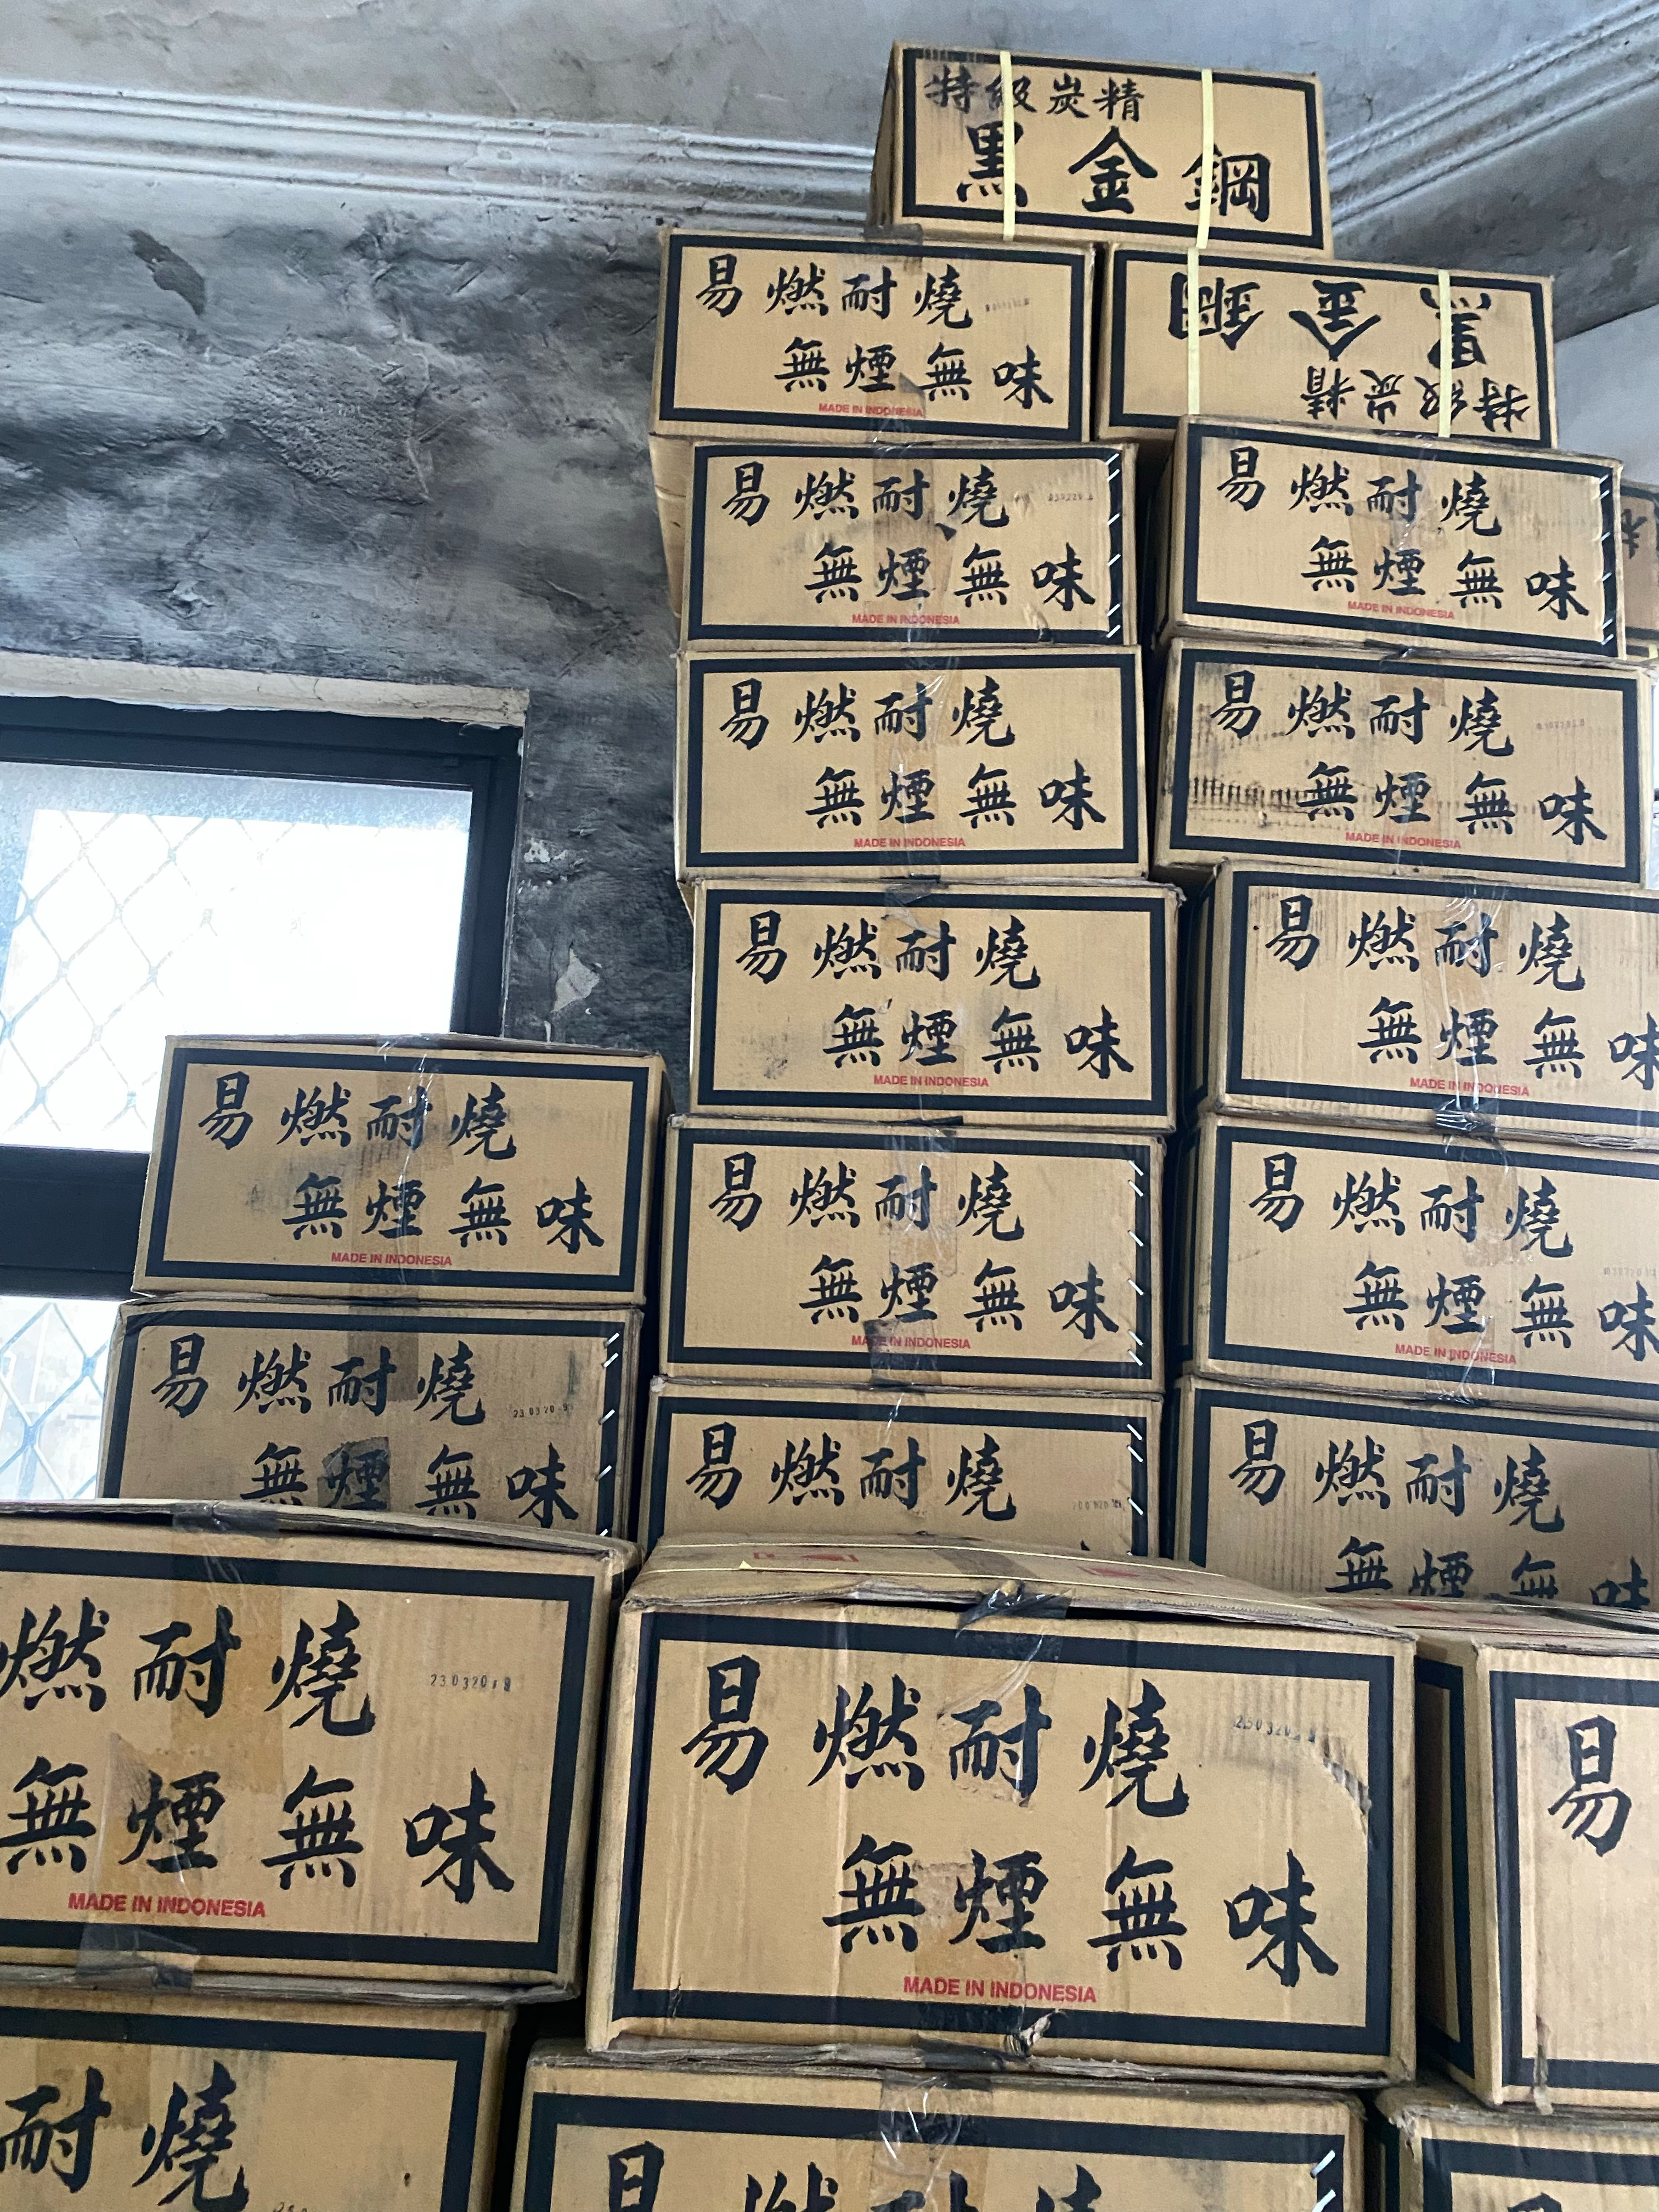 特級炭精
黑金鋼
易燃耐燒
無煙無味
MADE IN INDONESIA
黑金鋼
特級炭精
易燃耐燒
無煙無味
MADE IN INDONESIA
易燃耐燒
無煙無味
MADE IN INDONESIA
易燃耐燒
無煙無味
MADE IN INDONESIA
易燃耐燒
無煙無味
MADE IN INDONESIA
易燃耐燒
無煙無味
MADE IN INDONESIA
易燃耐燒
無煙無味
MADE IN INDONESIA
易燃耐燒
無煙無味
MADE IN INDONESIA
易燃耐燒
無煙無味
MADE IN INDONESIA
易燃耐燒
無煙無味
MADE IN INDONESIA
易燃耐燒
無煙無味
易燃耐燒
易燃耐燒
無煙無味
燃耐燒
無煙無味
MADE IN INDONESIA
易燃耐燒
無煙無味
MADE IN INDONESIA
易
耐燒
易燃